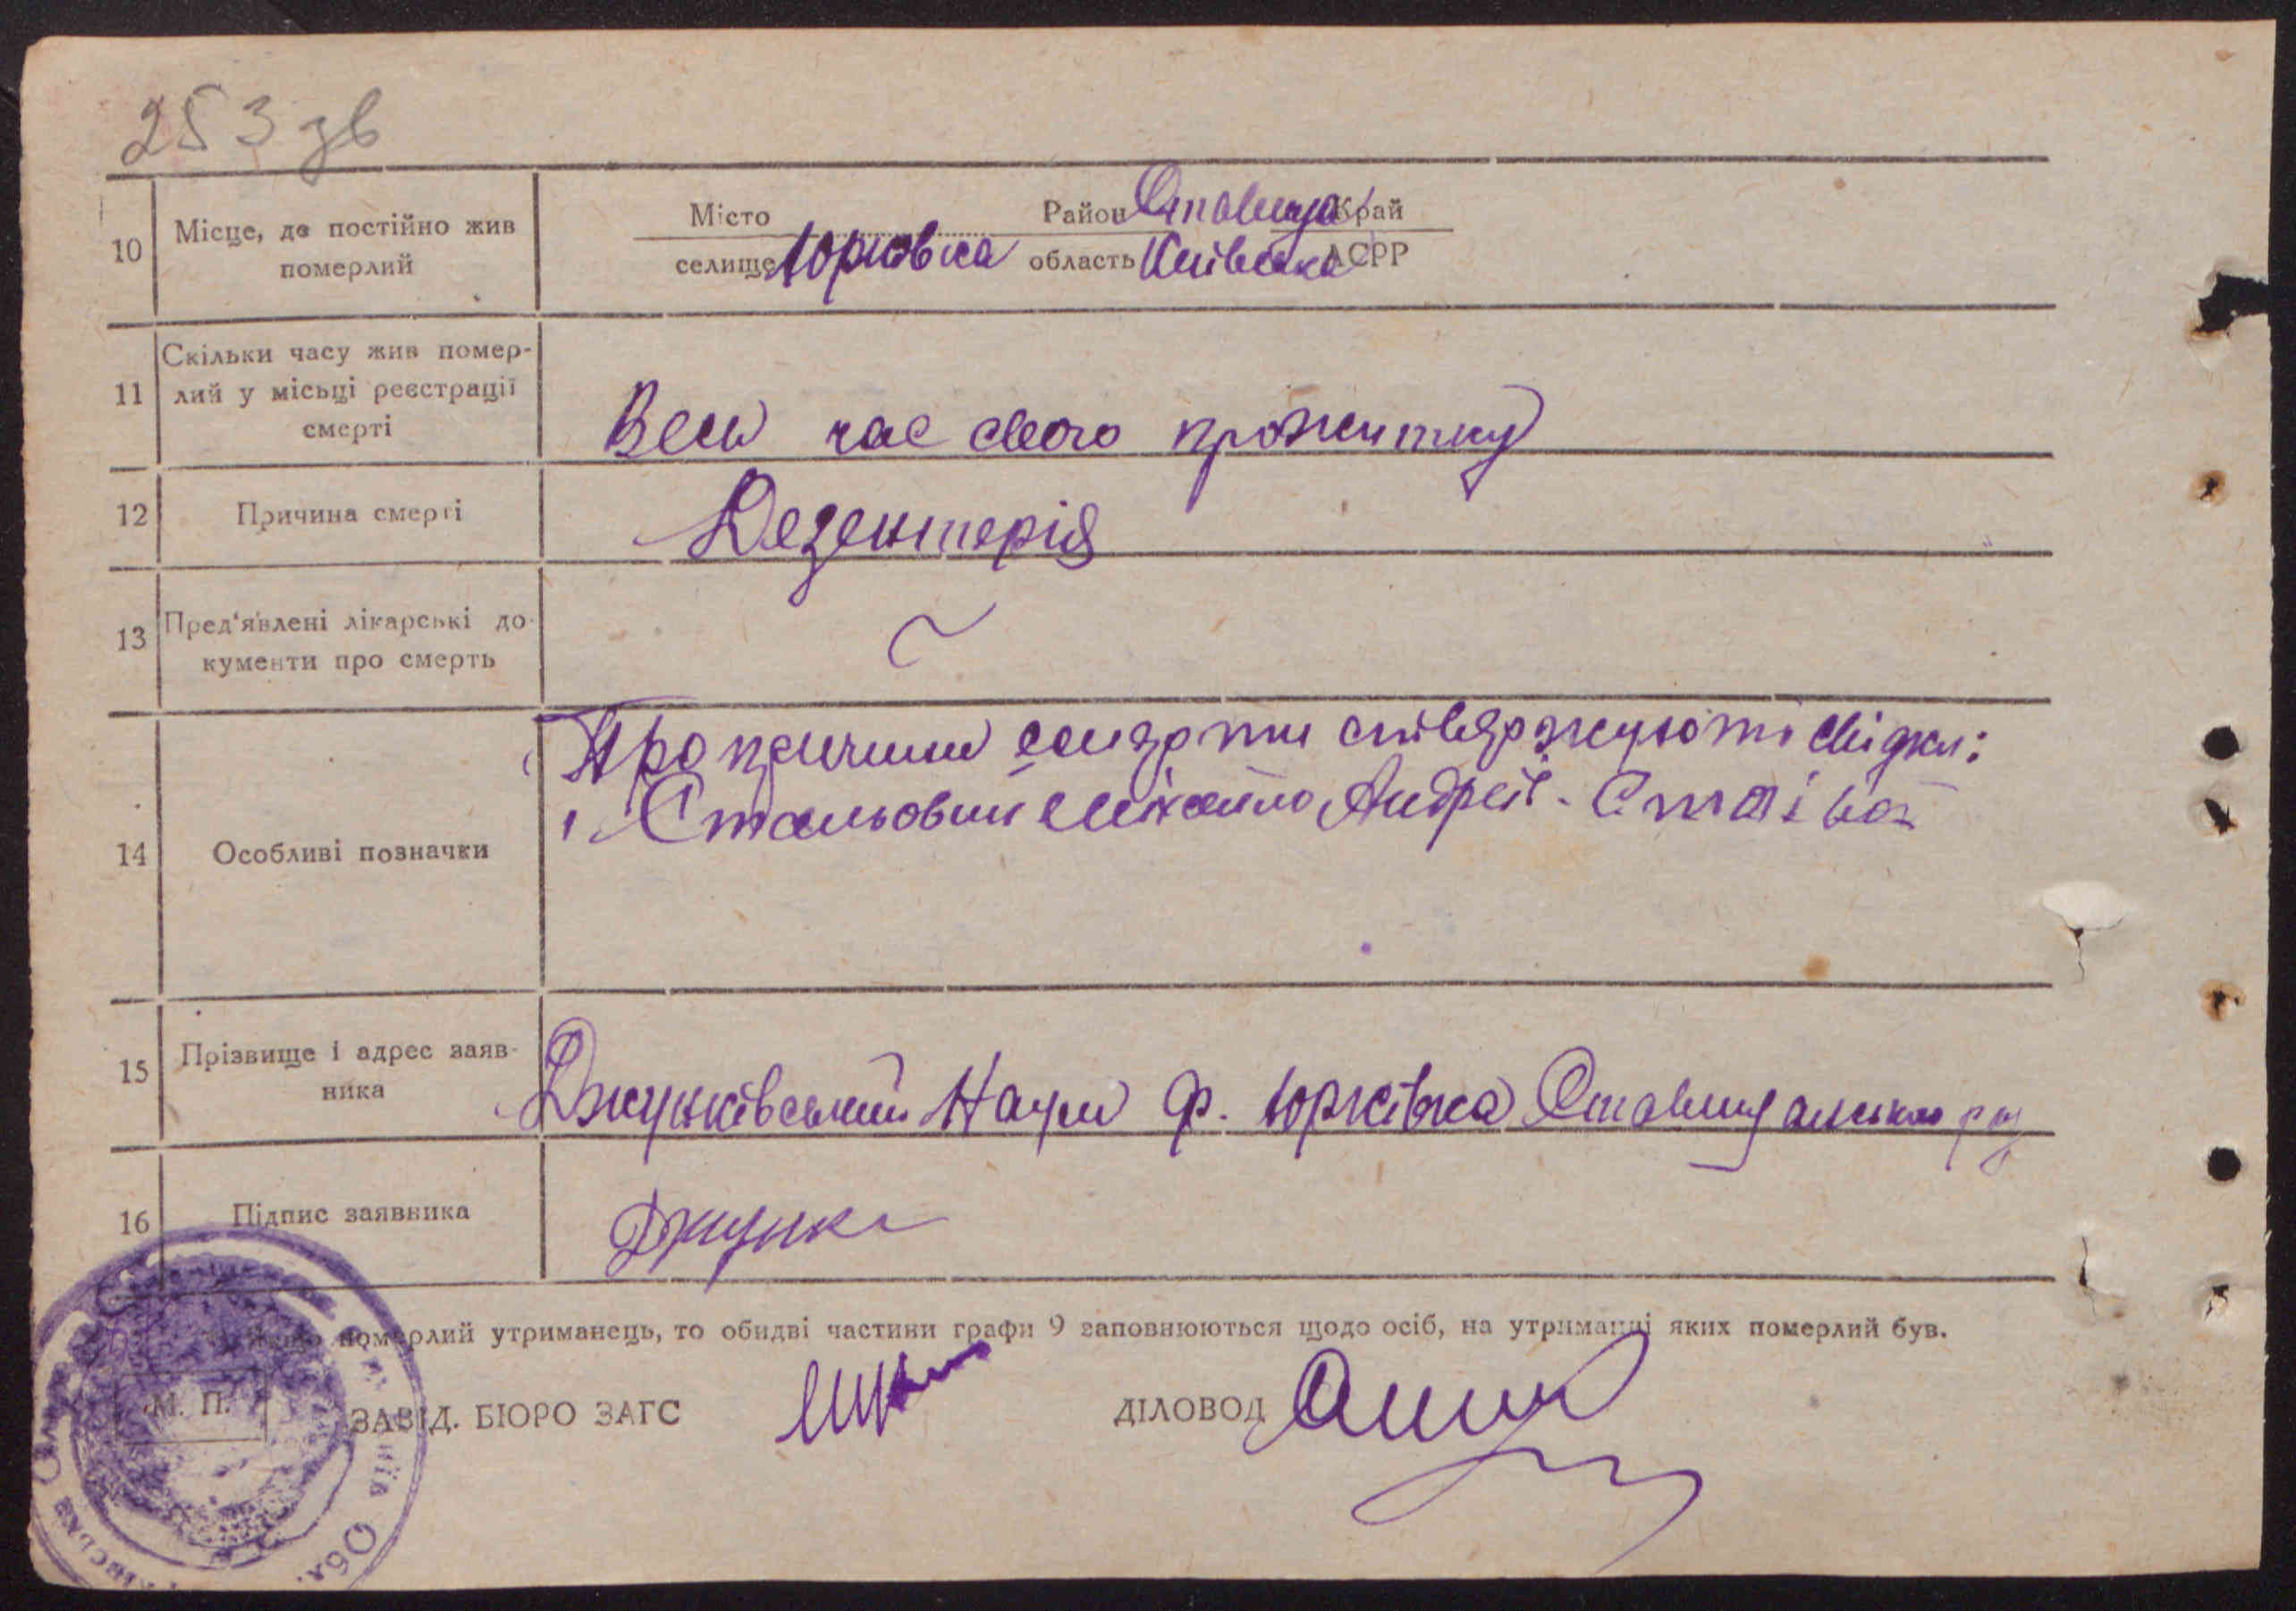 253 зв
10 Місце, де постійно жив померлий
Місто Район Ставище Край
селище Юрковка область Київська АСРР
11 Скільки часу жив помер-
лий у місьці реєстрації
смерті
Весь час свого прожитку
12 Причина смерті Дезентерія
13 Пред'явлені лікарські до-
кументи про смерть
14 Особливі позначки
Про причини смерти стверджують свідки:
1 Стальовий Михайло Андреїв.
15 Прізвище і адрес заяв-
ника
Джунківський Наум Ф. Юрківка Ставищанського р
16 Підпис заявника Джунк
померлий утриманець, то обидві частини графи 9 заповнюються щодо осіб, на утриманні яких померлий був.
М. П. ЗАВІД. БЮРО ЗАГС ДІЛОВОД